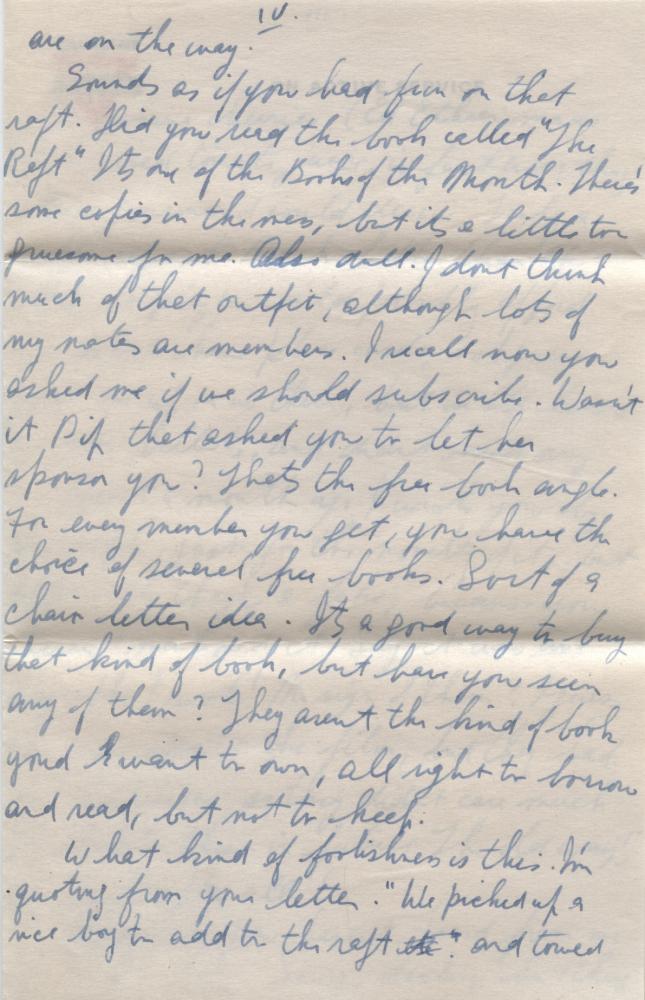 IV.
are on the way.
Sounds as if you had fun on that
raft. Did you read the book called "The
Raft" Its one of the Books of the Month. There's
some copies in the mess, but its a little too
gruesome for me. Also dull. I dont think
much of that outfit, although lots of
my mates are members. I recall now you
asked me if we should subscribe. Wasn't
it Pip that asked you to let her
sponsor you? Thats the free book angle.
For every member you get, you have the
choice of several free books. Sort of a
chain letter idea. Its a good way to buy
that kind of book, but have you seen
any of them? They arent the kind of book
youd want to own, all right to borrow
and read, but not to keep.
What kind of foolishness is this. I'm
quoting from your letter. "We picked up a
nice boy to add to the raft" and towed